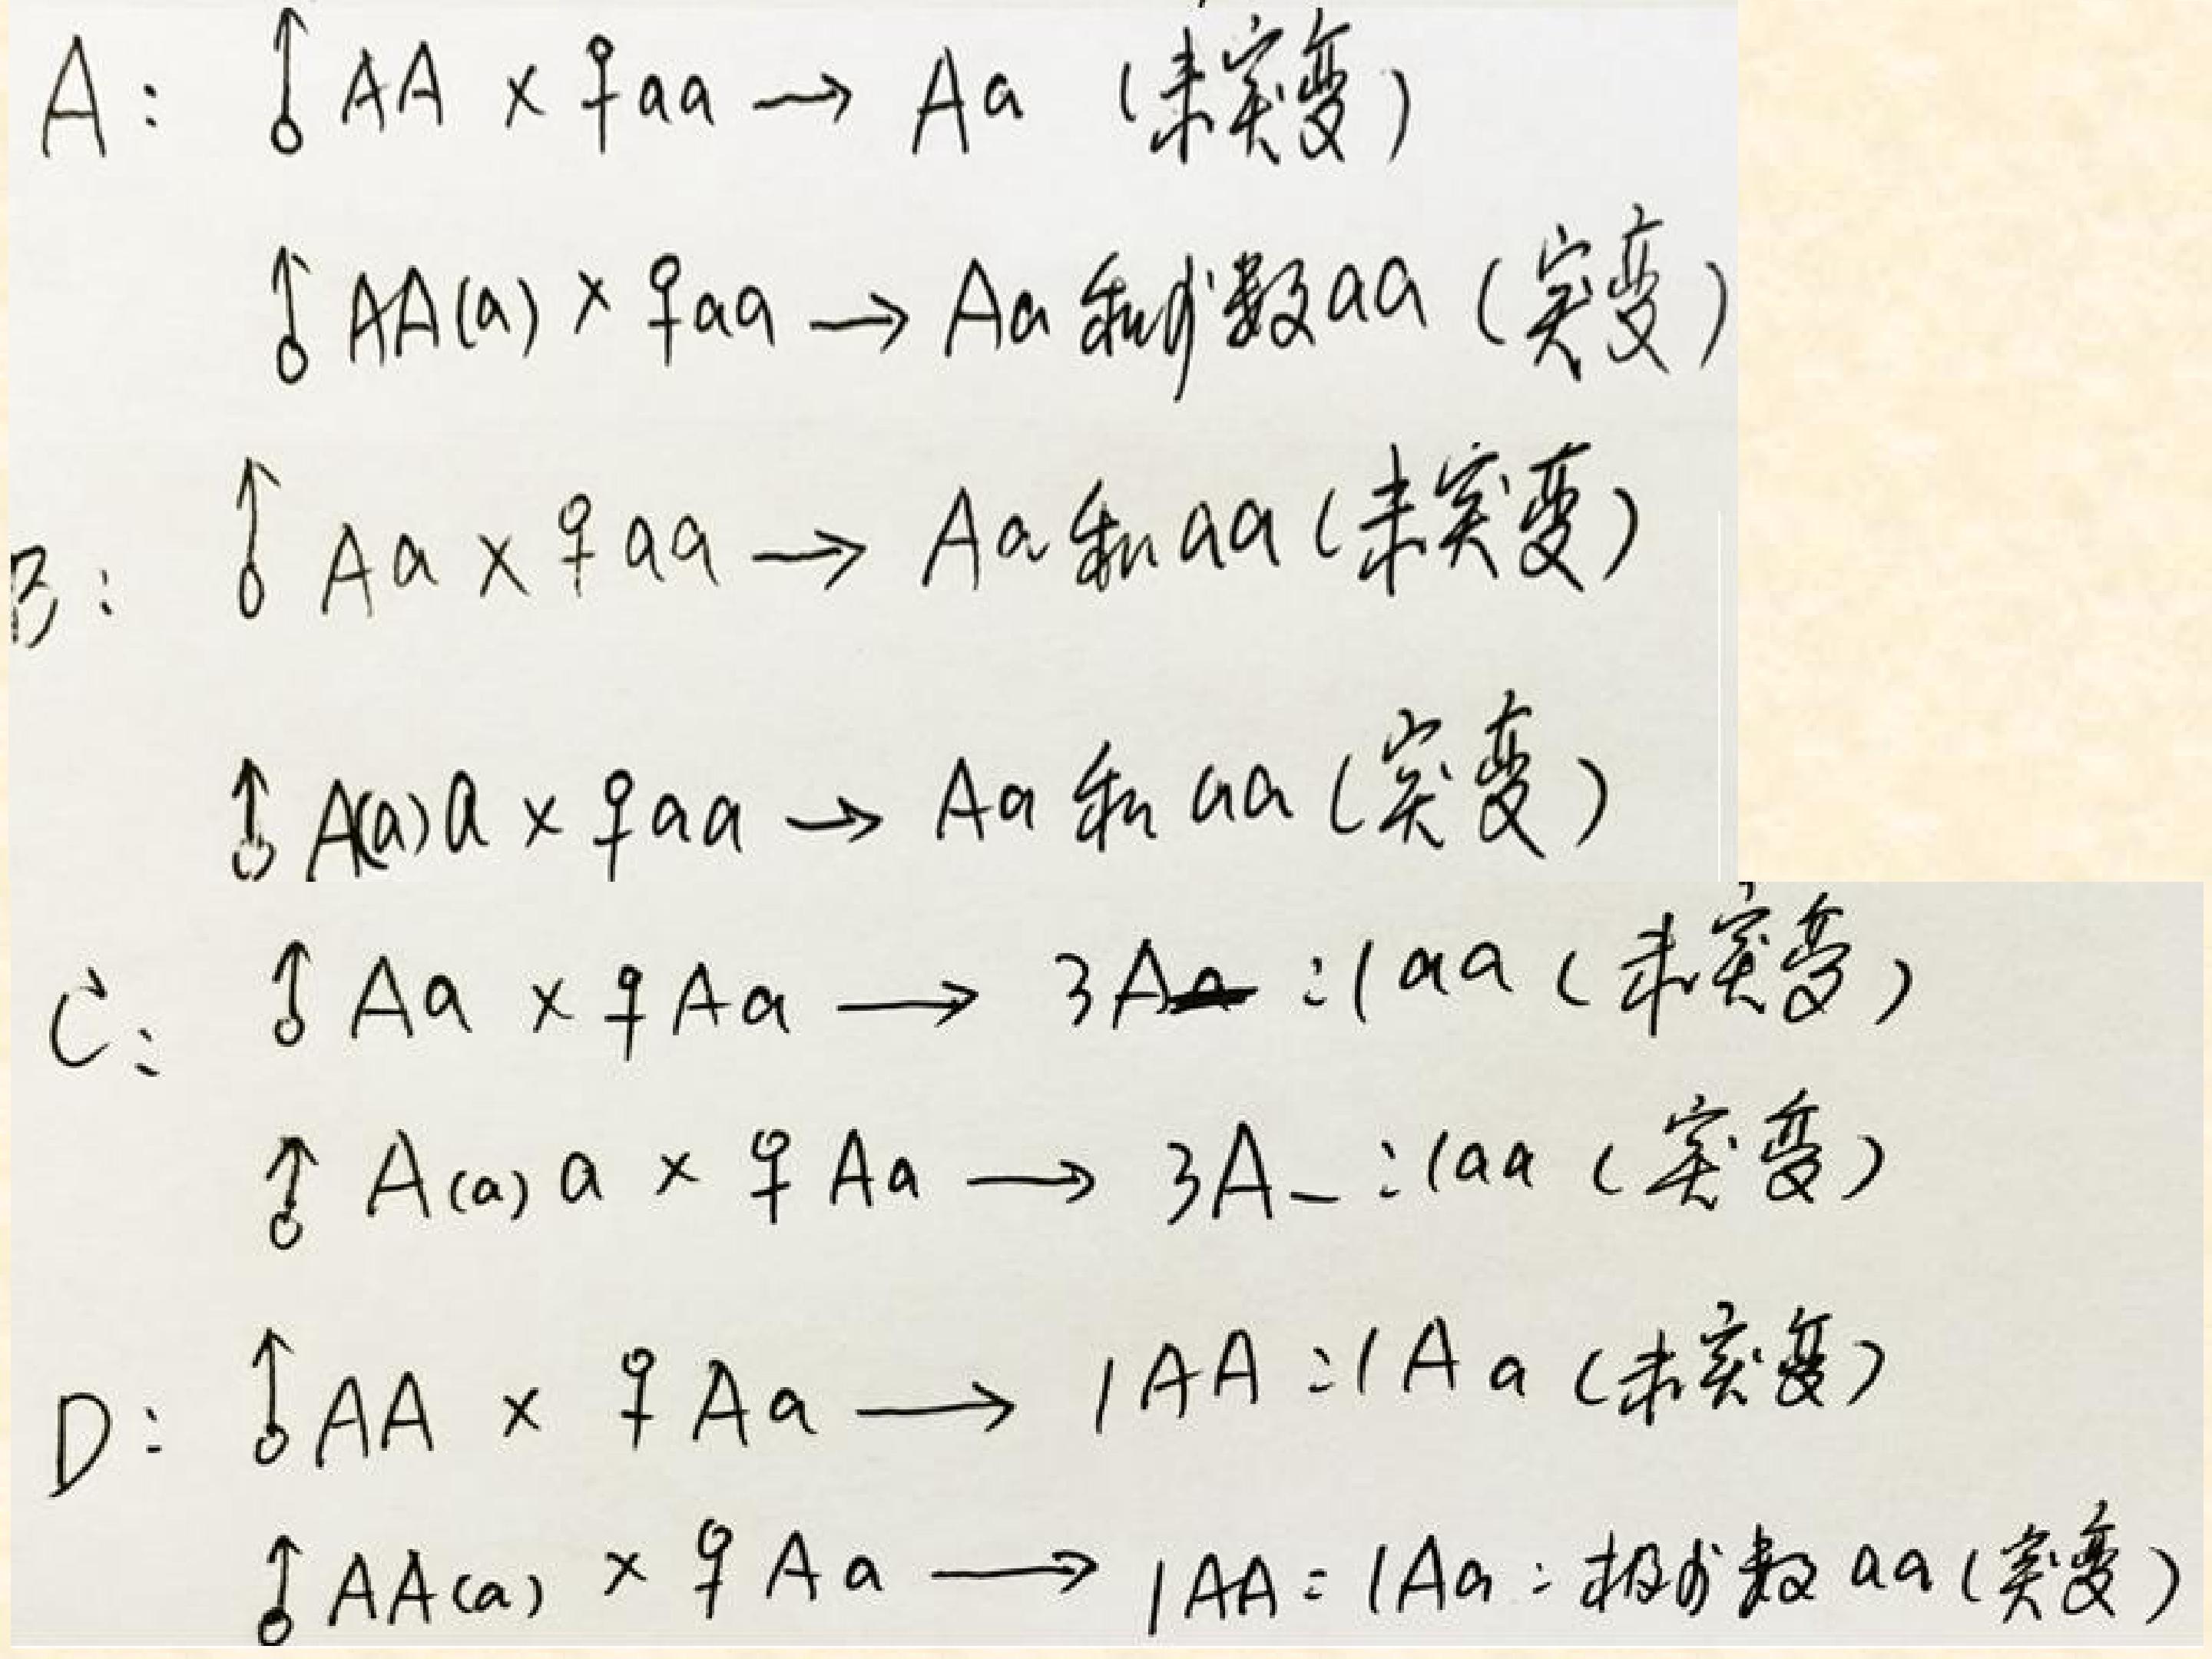 A: ♂AA × ♀aa → Aa (未突变)
♂AA(a) × ♀aa → Aa和少数aa (突变)
B: ♂Aa × ♀aa → Aa和aa (未突变)
♂A(a)a × ♀aa → Aa和aa (突变)
C: ♂Aa × ♀Aa → 3A_ :1aa (未突变)
♂A(a)a × ♀Aa → 3A_ :1aa (突变)
D: ♂AA × ♀Aa → 1AA :1Aa (未突变)
♂AA(a) × ♀Aa → 1AA :1Aa :极少数aa (突变)